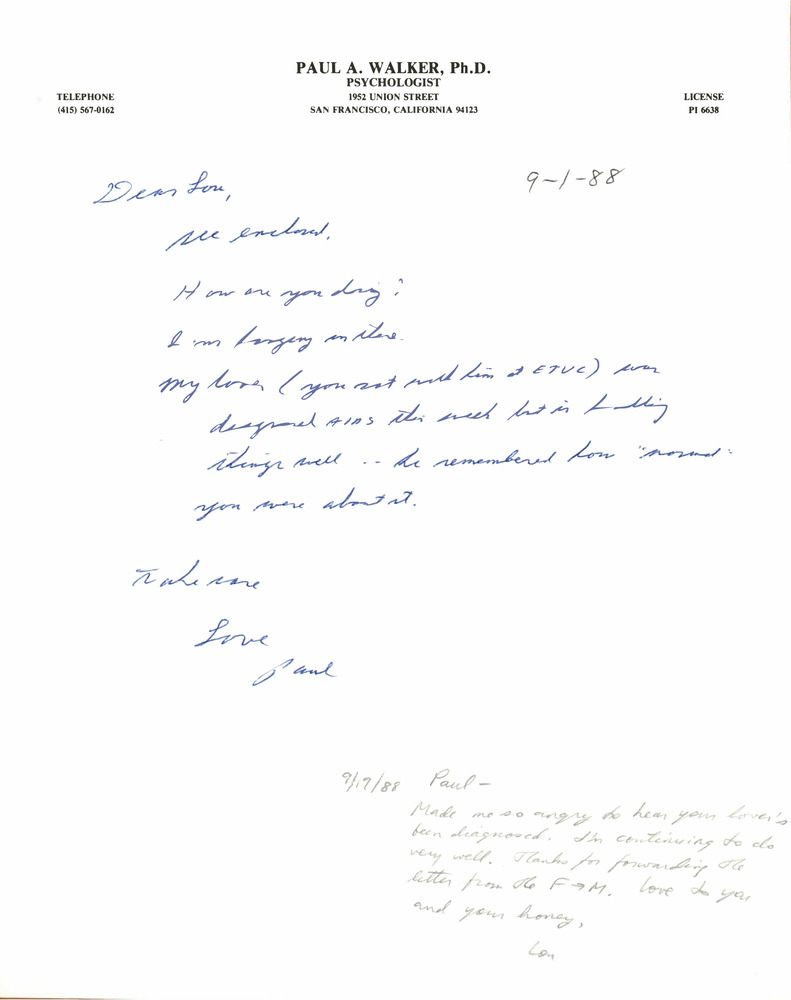 PAUL A. WALKER, Ph.D.
PSYCHOLOGIST
1952 UNION STREET
SAN FRANCISCO, CALIFORNIA 94123
TELEPHONE
(415) 567-0162
LICENSE
PI 6638
9-1-88
Dear Lou,
see enclosed.
How are you doing?
I'm hanging in there.
My lover (you sat with him at ETVC) was
diagnosed AIDS this week but is handling
things well -- he remembered how "normal"
you were about it.
Take care
Love
Paul
9/17/88 Paul—
Made me so angry to hear your lover's
been diagnosed. I'm continuing to do
very well. Thanks for forwarding the
letter from the F→M. Love to you
and your honey,
Lou